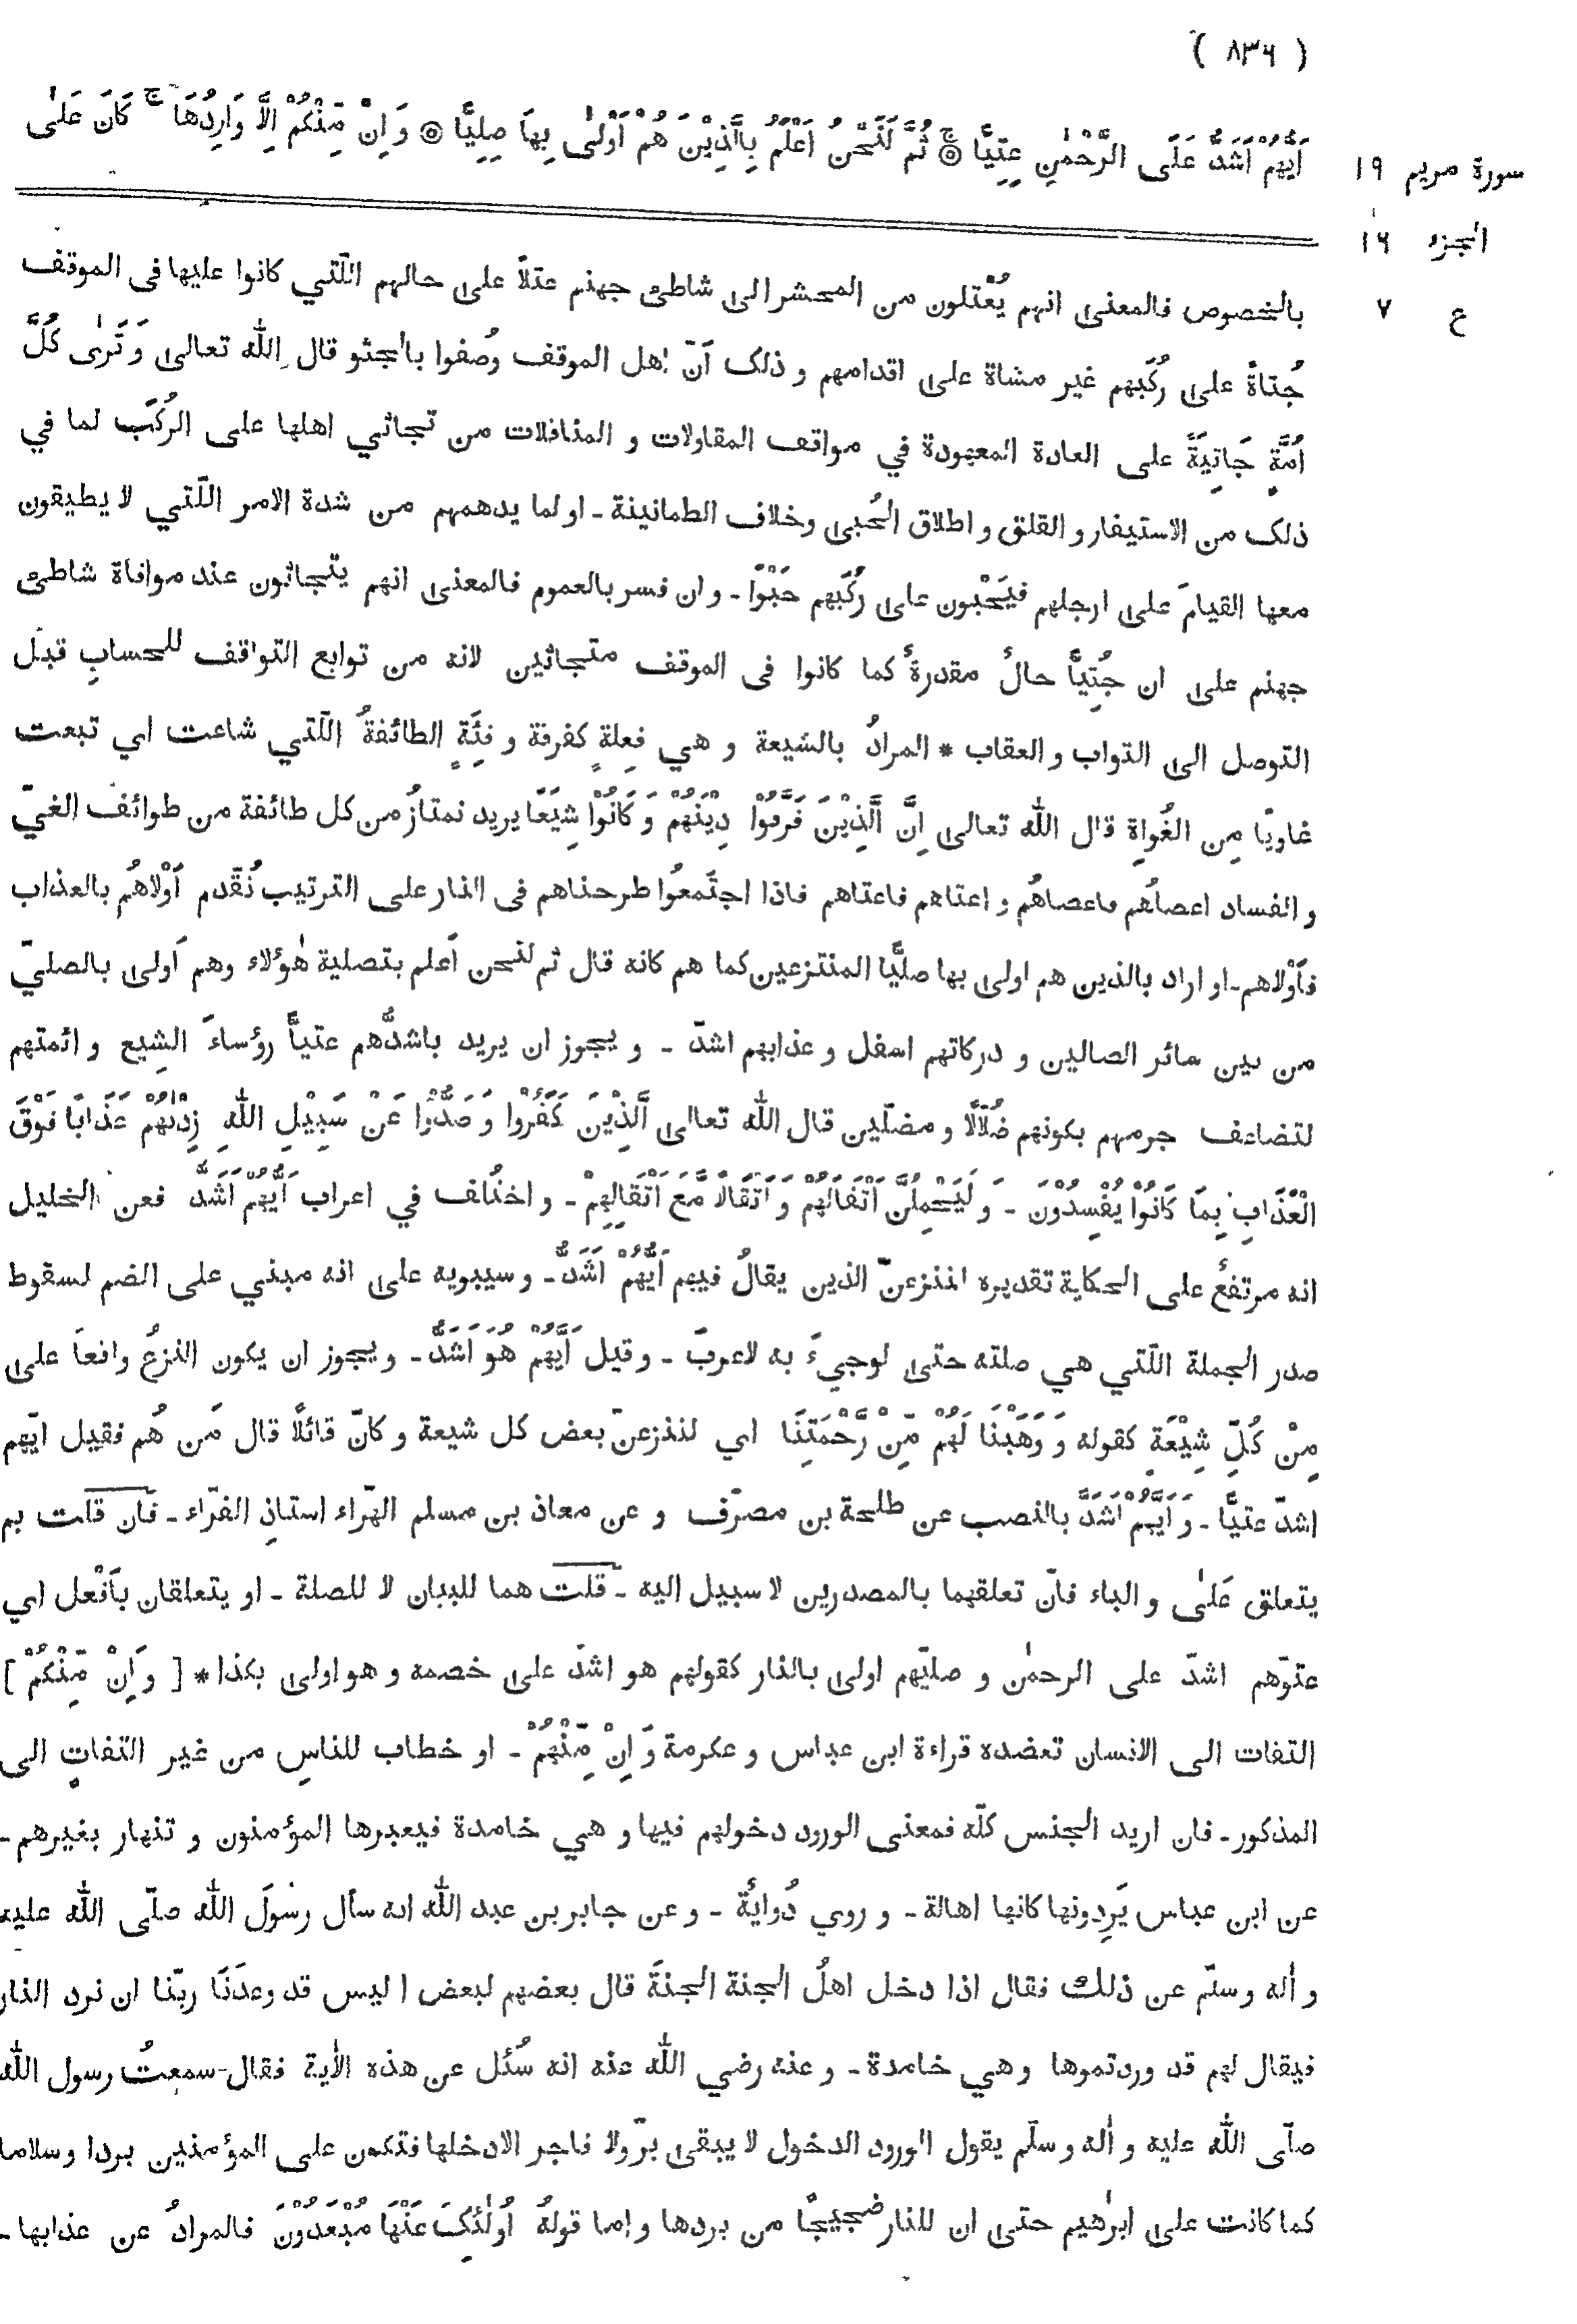 ( ٨٣٦ )
اَيُّهُمْ اَشَدُّ عَلَى الرَّحْمٰنِ عِتِيًّا ۞ ثُمَّ لَنَحْنُ اَعْلَمُ بِالَّذِيْنَ هُمْ اَوْلٰى بِهَا صِلِيًّا ۞ وَ اِنْ مِّنْكُمْ اِلَّا وَارِدُهَا ۚ كَانَ عَلٰى
سورة مريم ١٩
الجزء ١٦
ع ٧
بالخصوص فالمعنى انهم يُعْتلون من المحشر الى شاطئ جهنم عتلاً على حالهم اللّتي كانوا عليها فى الموقف
جُثاةً على رُكَبهم غير مشاة على اقدامهم و ذلك اَنّ اهل الموقف وُصفوا بالجثو قال الله تعالى وَ تَرٰى كُلَّ
اُمَّةٍ جَاثِيَةً على العادة المعهودة في مواقف المقاولات و المناقلات من تجاثي اهلها على الركَب لما في
ذلك من الاستيفاز و القلق و اطلاق الحُبى وخلاف الطمانينة - او لما يدهمهم من شدة الامر اللّتي لا يطيقون
معها القيامَ على ارجلهم فيَحْبون على رُكَبهم حَبْوًا - و ان فسر بالعموم فالمعنى انهم يتجاثون عند موافاة شاطئ
جهنم على ان جُثِيًّا حالٌ مقدرةٌ كما كانوا فى الموقف متجاثين لانه من توابع التواقف للحسابِ قبل
التوصل الى الثواب و العقاب * المرادُ بالشيعة و هي فِعلةٍ كفرقة و فِئَةٍ الطائفةُ اللّتي شاعت اي تبعت
غاويًا مِن الغُواةِ قال الله تعالى اِنَّ الَّذِيْنَ فَرَّقُوْا دِيْنَهُمْ وَ كَانُوْا شِيَعًا يريد نمتازُ من كل طائفة من طوائف الغيّ
و الفساد اعصاهُم فاعصاهُم و اعتاهم فاعتاهم فاذا اجتَمعُوا طرحناهم فى النار على الترتيب نُقَدم اَوْلاهُم بالعذاب
فاَوْلاهم - او اراد بالذين هم اولى بها صليًّا المنتزعين كما هم كانه قال ثم لنحن اَعلم بتصلية هٰؤلاء وهم اَولى بالصليّ
من بين سائر الصالين و دركاتهم اسفل و عذابهم اشدّ - و يجوز ان يريد باشدّهم عتيًّا رؤساءَ الشِيع و ائمتهم
لتضاعف جرمهم بكونهم ضُلّالًا و مضلّين قال الله تعالى اَلَّذِيْنَ كَفَرُوْا وَ صَدُّوْا عَنْ سَبِيْلِ اللهِ زِدْنٰهُمْ عَذَابًا فَوْقَ
الْعَذَابِ بِمَا كَانُوْا يُفْسِدُوْنَ - وَ لَيَحْمِلُنَّ اَثْقَالَهُمْ وَ اَثْقَالًا مَّعَ اَثْقَالِهِمْ - و اختُلف في اعراب اَيُّهُمْ اَشَدُّ فعن الخليل
انه مرتفعٌ على الحكاية تقديره لننزعنّ الذين يقالُ فيهم اَيُّهُمْ اَشَدُّ - و سيبويه على انه مبني على الضم لسقوط
صدر الجملة اللّتي هي صلته حتى لوجيءَ به لاعربَ - و قيل اَيُّهُمْ هُوَ اَشَدُّ - و يجوز ان يكون النزعُ واقعاَ على
مِنْ كُلِّ شِيْعَةٍ كقوله وَ وَهَبْنَا لَهُمْ مِّنْ رَّحْمَتِنَا اي لننزعنّ بعض كل شيعة و كانّ قائلًا قال مَن هُم فقيل ايّهم
اشدّ عتيًّا - وَ اَيَّهُمْ اَشَدُّ بالنصب عن طلحة بن مصرّف و عن معاذ بن مسلم الهّراء استاذِ الفرّاء - فان قلت بم
يتعلق عَلٰى و الباء فانّ تعلقهما بالمصدرين لا سبيل اليه - قلت هما للبيان لا للصلة - او يتعلقان باَفْعل اي
عتوّهم اشدّ على الرحمٰن و صليّهم اولى بالنار كقولهم هو اشدّ على خصمه و هو اولى بكذا * [ وَ اِنْ مِّنْكُمْ ]
التفات الى الانسان تعضده قراءة ابن عباس و عكرمة وَ اِنْ مِّنْهُمْ - او خطاب للناسِ من غير التفاتٍ الى
المذكور - فان اريد الجنس كلّه فمعنى الورود دخولهم فيها و هي خامدة فيعبرها المؤمنون و تنهار بغيرهم -
عن ابن عباس يَرِدونها كانها اهالة - و روي دُوايةٌ - و عن جابر بن عبد الله انه سأل رسُولَ الله صلّى الله عليه
و اٰله و سلّم عن ذلك فقال اذا دخل اهلُ الجنة الجنةَ قال بعضهم لبعض ا ليس قد وعدَنَا ربّنا ان نرد النار
فيقال لهم قد وردتموها و هي خامدة - و عنه رضي الله عنه انه سُئل عن هذه الاٰية فقال - سمعتُ رسول الله
صلّى الله عليه و اٰله و سلّم يقول الورود الدخول لا يبقى برّ ولا فاجر الا دخلها فتكون على المؤمنين بردا و سلاما
كما كانت على ابرٰهيم حتى ان للنار ضجيجًا من بردها و اما قولهُ اُولٰئِكَ عَنْهَا مُبْعَدُوْنَ فالمرادُ عن عذابها -